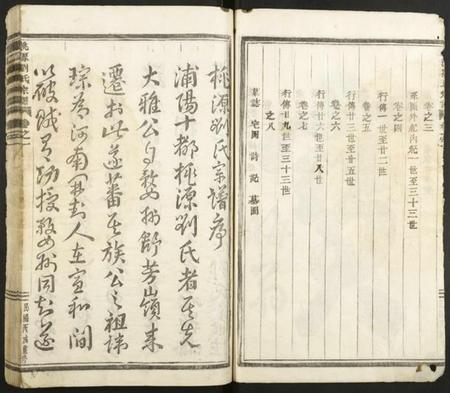 卷之三
系圖外紀內紀一世至三十三世
卷之四
行傳一世至廿二世
卷之五
行傳廿三世至廿五世
卷之六
行傳廿六世至廿八世
卷之七
行傳廿九世至三十三世
卷之八
宅圖 詩記 墓圖
桃源劉氏宗譜序
浦陽十都桃源劉氏者其先
大雅公自婺州舒芳山嶺來
遷於此遂蕃其族公之祖諱
琮為河南開封人在宣和間
以破賊有功授婺州同知遂
桃源劉氏宗譜
卷之一